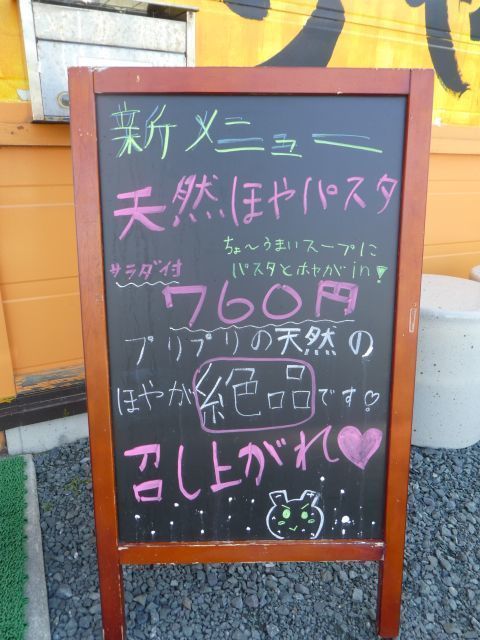 新メニュー
天然ほやパスタ
ちょ～うまいスープに
パスタとホヤがin!
サラダ付
760円
プリプリの天然の
ほやが絶品です♡
召し上がれ♥